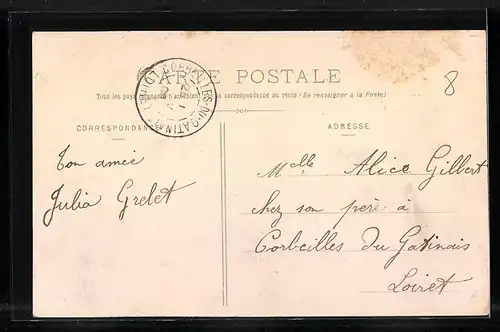 CARTE POSTALE
8
Tous les pays étrangers n'acceptent pas la correspondance au recto (Se renseigner à la Poste)
CORRESPONDANCE
ADRESSE
CORBEILLES-DU-GATINAIS
Ton amie
Julia Grelet
Melle Alice Gilbert
chez son père à
Corbeilles du Gatinais
Loiret